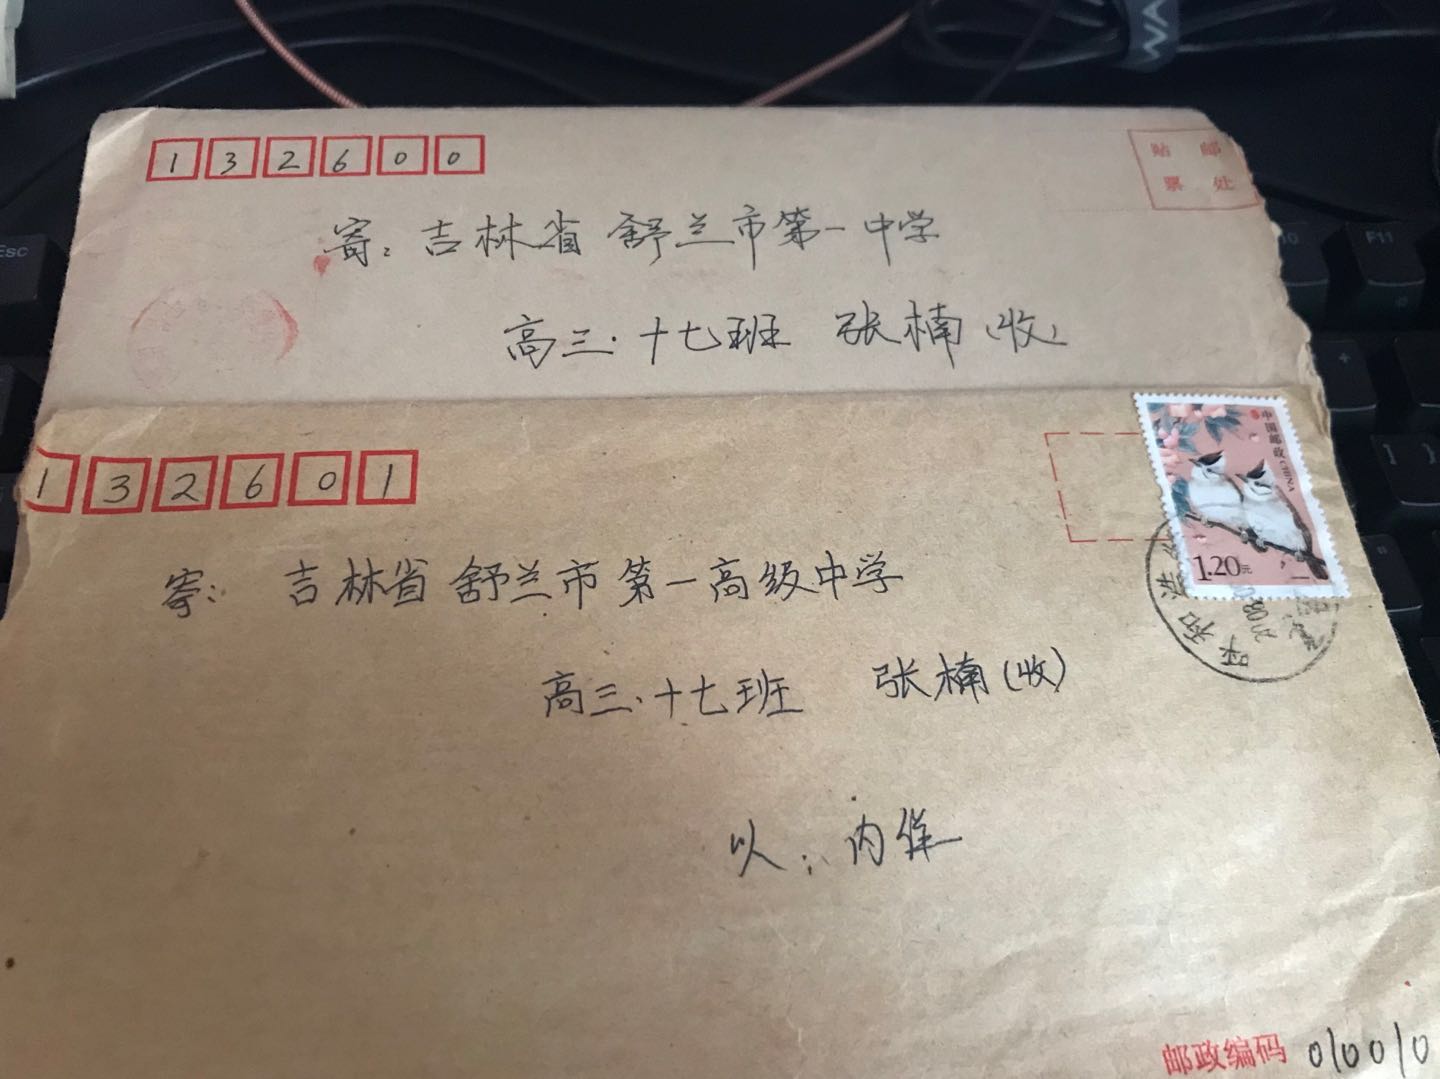 132600
贴 邮
票 处
寄：吉林省舒兰市第一中学
高三·十七班 张楠（收）
132601
中国邮政 CHINA
1.20元
寄：吉林省舒兰市第一高级中学
高三·十七班 张楠（收）
呼和浩
以：内详
邮政编码 010010
Esc
F11